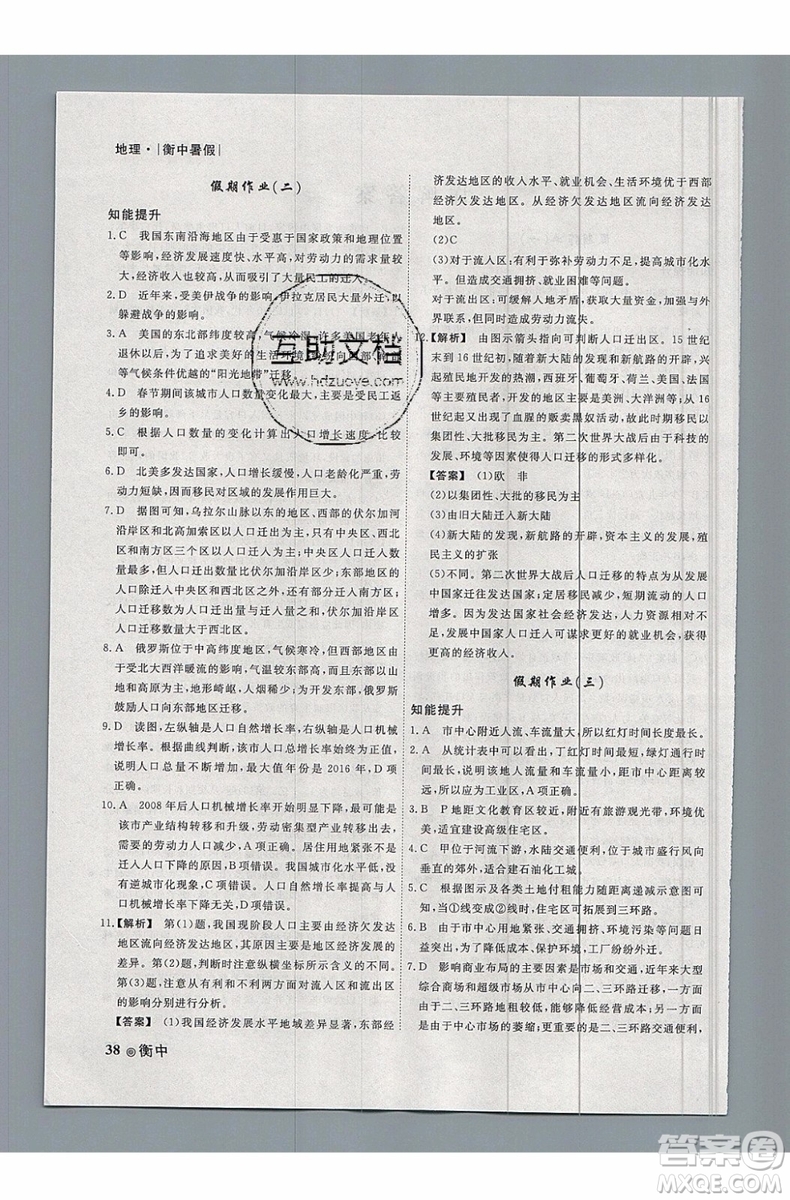 地理·|衡中暑假|
假期作业(二)
知能提升
1.C 我国东南沿海地区由于受惠于国家政策和地理位置
等的影响,经济发展速度快、水平高,对劳动力的需求量较
大,经济收入也较高,吸引了大量民工的迁入。
2.D 近年来,受美伊战争的影响,伊拉克居民大量外迁,以
躲避战争的影响。
3.A 美国的东北部纬度较高,气候冷湿,许多美国老年人
退休以后,为了追求舒适的生活环境,纷纷向西部、南
等气候条件优越的“阳光地带”迁移。
4.D 春节期间该城市人口数量变化最大,主要是受民工返
乡的影响。
5.C 根据人口数量的变化计算出人口增长速度,比较
即可。
6.D 北美多发达国家,人口增长缓慢,人口老龄化严重,劳
动力短缺,因而移民对区域的发展作用巨大。
7.D 据图可知,乌拉尔山脉以东的地区、西部的伏尔加河
沿岸区和北高加索区以人口迁出为主,只有中央区、西北
区和南方区三个区以人口迁入为主;中央区人口迁出数
量小于南方区,但人口迁出数量伏尔加沿岸区最大;人口
迁入数量中央区大于南方区和西北区;东部地区,人口
除了迁入中央区和西北区外,还迁入了其他地区;中央区
人口迁移数量为人口迁出量与迁入量的累加,伏尔加沿
岸区人口迁移数量大于西北区。
8.A 俄罗斯位于中高纬度地区,气候寒冷,但西部由于
受北大西洋暖流的影响,气温较东部高、降水较东部多。
东部以山地和高原为主,地形崎岖,人烟稀少;东部,俄罗斯
鼓励人口向东部地区迁移。
9.D 读图,左纵轴是人口自然增长率,右纵轴是人口机械
增长率。根据曲线判断,该市人口总增长率先升后降,
但是人口总量不断增加,增量最大的年份是 2016 年,D项
正确。
10.A 2008 年后人口机械增长率开始明显下降,最可能是
该市产业结构转移和升级,劳动密集型产业转移出去,
需要的劳动力减少,A项正确。居住用地紧张不是导致
人口下降的原因,B项错误。我国城市化水平不高,没
有逆城市化现象,C项错误。人口自然增长率与计划生
育政策的推行力度有关,D项错误。
11.【解析】 第(1)题,我国现阶段人口主要由经济欠发达
地区流向经济发达地区,其原因主要是地区经济发展的
差异。第(2)题,判断时注意纵横坐标表示的含义。第
(3)题,注意从有利和不利两方面,对流入区和流出区
的影响分别进行分析。
【答案】 (1)我国经济发展水平地域差异显著,东部经
济发达地区的收入水平、就业机会、生活环境优于西部
经济欠发达地区,人口从经济欠发达地区流向经济发达
地区。
(2)C
(3)对于流入区:有利于弥补劳动力不足,提高城市化水
平;会造成交通拥挤、就业困难等问题。
对于流出区:可缓解人地矛盾,增加当地居民收入,加强
对外联系,但可能造成劳动力流失。
12.【解析】 由图示箭头指向可判断人口迁出。15 世纪
末到 16 世纪初,新大陆的发现和新航路的开辟,兴
起殖民地的开拓,西班牙、葡萄牙、荷兰、英国、法国
等国主要殖民方向是美洲、大洋洲等;从 16
世纪起出现了血腥的贩卖黑奴活动,此时期移民以
集团性、大批量为主。第二次世界大战后由于科技的
发展等因素使得人口迁移的形式多样化。
【答案】 (1)欧 非
(2)以集团性、大批的移民为主
(3)由旧大陆迁入新大陆
(4)新大陆的发现、新航路的开辟,资本主义的发展,
殖民主义的扩张
(5)不同。第二次世界大战后人口迁移的特点为从发展
中国家迁往发达国家,定居移民减少,短期流动工人
增加。发达国家社会经济经济发达,人力资源相对匮
乏,发展中国家人口迁入可谋求更好的就业机会,获得更
高的经济收入。
假期作业(三)
知能提升
1.A 市中心附近人流、车流量最大,所以红灯时间最长。
2.A 从统计表中可以看出,丁红灯时间短,绿灯通行时间
长,说明该地人流量和车流量相对较小,距市中心最远,
所以应为工业区,A正确。
3.B P地距文化教育区较近,附近有旅游观光带,环境优
美,适宜建设高级住宅区。
4.C 甲位于河流下游,水陆交通便利,位于城市盛行风向
垂直的郊外,适合建石油化工城。
5.C 根据图示及各类土地付租能力随距离递减示意图可
知,当①线变成②线时,住宅区可拓展到三环路。
6.B 由于市中心用地紧张、交通拥挤、环境污染等问题日
益突出,为了降低成本、保护环境,工厂纷纷外迁。
7.D 影响商业布局的主要因素是市场和交通,近年来大型
综合商场和超级市场从市中心向二、三环路迁移,主要是
因为二、三环路交通便利,能够降低经营成本;有便利的
交通,不是由于中心市场的萎缩;也不是由于二、三环路商
业网点密集。
38 ◎衡中
互助文档
www.hdzuoye.com
答案圈
MXQE.COM